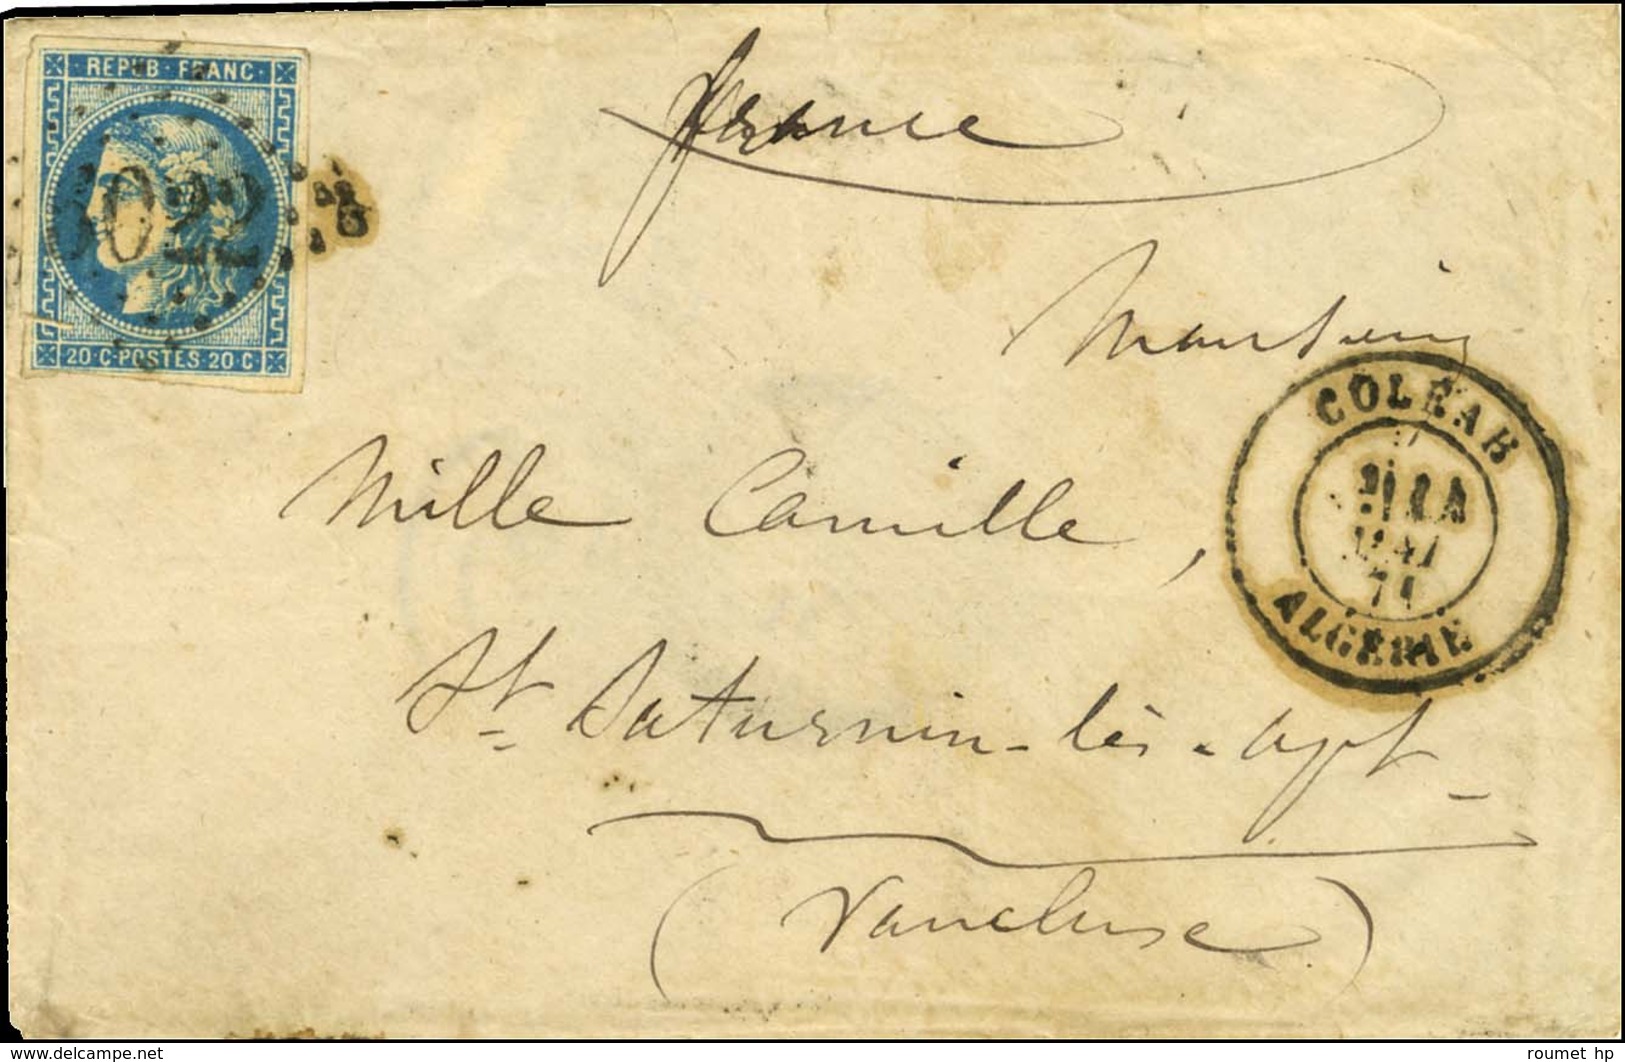 REPUB · FRANC ·
5022
20 · C · POSTES · 20 · C ·
france
Monsieur
COLÉAH
MAI
71
ALGÉRIE
Mille Camille,
St Saturnin-lès-apt
(Vaucluse)
www.delcampe.net
roumet hp